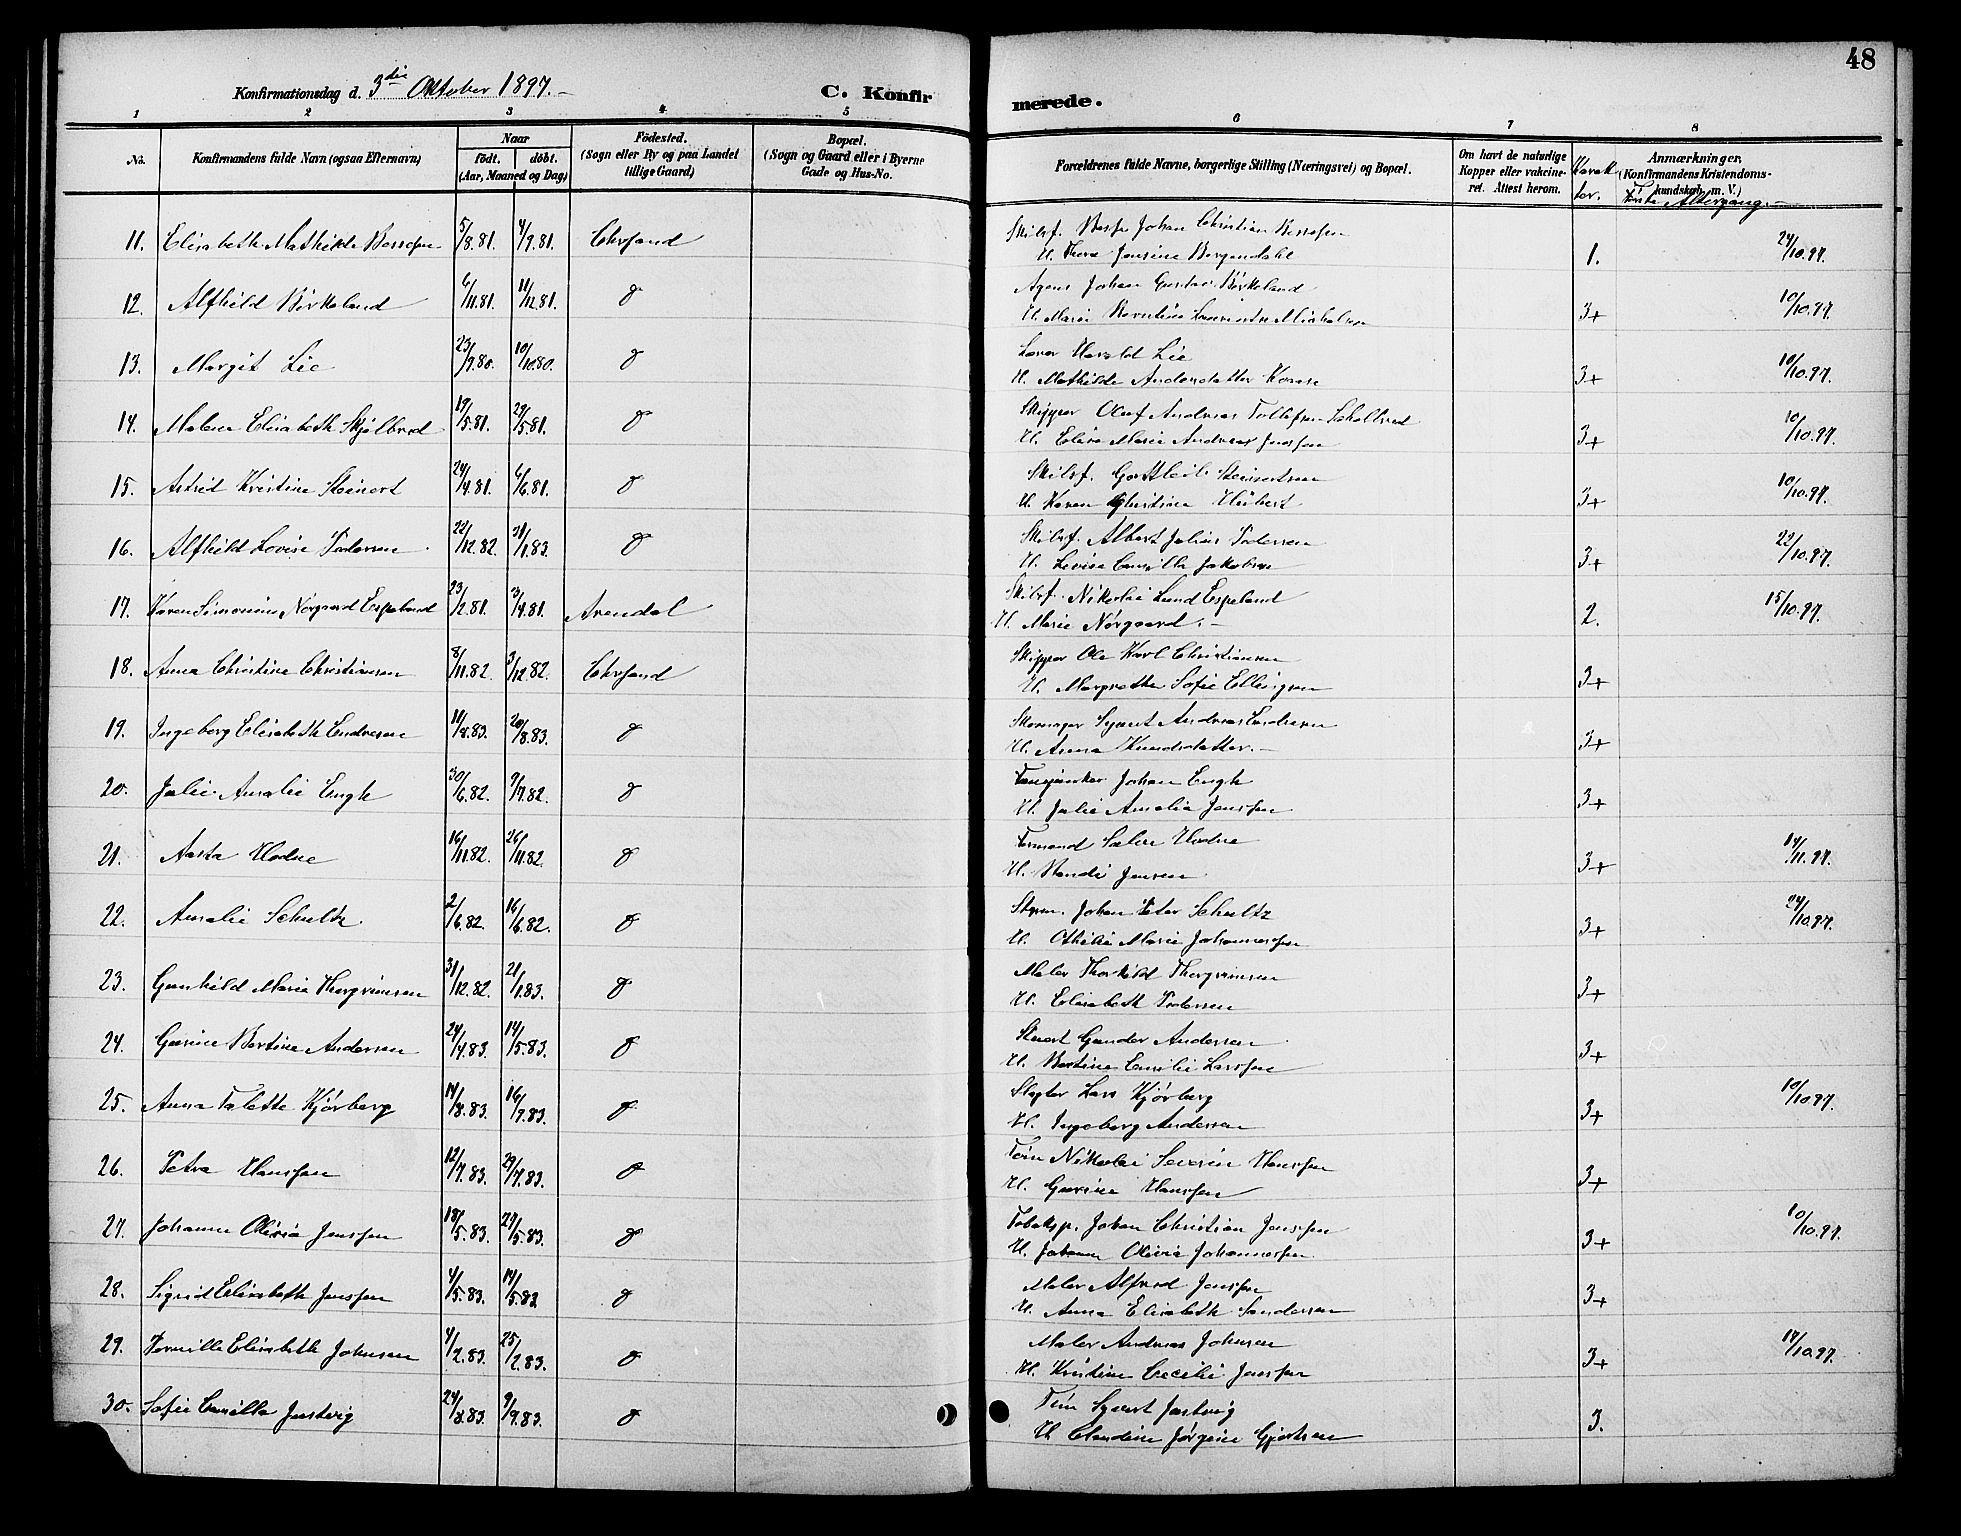 48
Konfirmationsdag d. 3die Oktober 1897.-
C. Konfir merede.
1 2 3 4 5 6 7 8
No.
Konfirmandens fulde Navn (ogsaa Efternavn)
Naar
født. døbt.
(Aar, Maaned og Dag)
Fødested.
(Sogn eller By og paa Landet
tillige Gaard)
Bopæl.
(Sogn og Gaard eller i Byerne
Gade og Hus-No.
Forældrenes fulde Navne, borgerlige Stilling (Næringsvei) og Bopæl.
Om havt de naturlige
Kopper eller vakcine-
ret. Attest herom.
Karak
ter.
Anmærkninger,
(Konfirmandens Kristendoms-
kundskab, m. V.)
Første Altergang.-
11. Elisabeth Mathilde Bessesen 5/8.81. 4/9.81. Chrsand Skibsf. Johan Christian Bessesen 1. 24/10.97.
H. Thora Jensine Bergendahl
12. Alfhild Birkeland 6/11.81. 11/12.81. d Agent Johan Gustav Birkeland 3+ 10/10.97.
H. Marie
13. Margit Lie 23/9.80. 10/10.80. d Lærer Harald Lie 3+ 10/10.97.
H. Mathilde Andersdatter
14. Malene Elisabeth Skjølbred 19/5.81. 29/5.81. d Skipper Oluf Andreas Tollefsen 3+ 10/10.97.
H. Elise Marie Andreas Jenssen
15. Astrid Kristine Steinert 24/4.81. 6/6.81. d Skibsf. Gottleib 3+ 10/10.97.
H. Karen Christine Hübert
16. Alfhild Lovise Pedersen 22/12.82. 31/1.83. d Skibsf. Albert Julius Pedersen 3+ 22/10.97.
H. Lovise Camilla Jakobsen
17. Karen Simonine Norgaard Espeland 23/2.81. 3/4.81. Arendal Skibsf. Nikolai Lund Espeland 2. 15/10.97.
H. Marie Nørgaard.-
18. Anna Christine Christiansen 8/11.82. 3/12.82. Chrsand Skipper Ole Karl Christiansen 3+
H. Margrethe Sofie Ellingsen
19. Ingeborg Elisabeth Endresen 11/8.83. 20/8.83. d Skomager Syvert Andreas Endresen 3+
H. Anna Knudsdatter.-
20. Julie Amalie Engh 30/6.82. 9/7.82. d Johan Engh 3+
H. Julie Amalia Jenssen
21. Aasta Hodne 16/11.82. 26/11.82. d Formand Hodne 3+ 14/11.97.
H. Jensen
22. Amalie Schultz 2/6.82. 16/6.82. d Styrm. Johan Peter Schultz 3+ 24/10.97.
H. Othilie Marie Johannessen
23. Gunhild Marie Thorgrimsen 31/12.82. 21/1.83. d Maler Thorkild Thorgrimsen 3+
H. Elisabeth Pedersen
24. Gusine Bertine Andersen 24/4.83. 14/5.83. d Stuert Gunder Andersen 3+
H. Bertine Emilie Larssen
25. Anna Talette Kjørberg 14/8.83. 16/9.83. d Slagter Lars Kjørberg 3+ 10/10.97.
H. Ingeborg Andersen
26. Petra Hanssen 12/7.83. 29/7.83. d Tøm Nikolai Severin Hanssen 3+
H. Gurine Hanssen
27. Johanne Olivia Jenssen 18/5.83. 27/5.83. d Tobaksp. Johan Christian Jenssen 3+ 10/10.97.
H. Johanne Olivia Johannessen
28. Sigrid Elisabeth Jenssen 4/5.83. 14/5.83 d Maler Alfred Jenssen 3+
H. Anna Elisabeth Sandersen
29. Pernille Elisabeth Johnsen 4/2.83. 25/2.83. d Maler Andreas Johnsen 3+ 17/10.97.
H. Kristine Cecilie Jenssen
30. Sofie Camilla Justvig 24/8.83. 9/9.83. d Tøm Syvert Justvig 3.
H. Claudine Jørgine Gjertsen